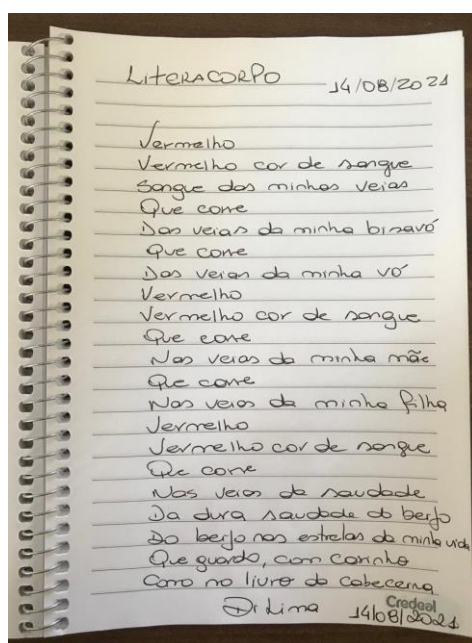 LiteraCorpo 14/08/2021
Vermelho
Vermelho cor de sangue
Sangue das minhas veias
Que corre
Das veias da minha bisavó
Que corre
Das veias da minha vó
Vermelho
Vermelho cor de sangue
Que corre
Nas veias da minha mãe
Que corre
Nas veias da minha filha
Vermelho
Vermelho cor de sangue
Que corre
Nas veias da saudade
Da dura saudade do berço
Do berço nas estrelas da minha vida
Que guardo, com carinho
Como no livro da cabeceira
Di Lima
Credeal
14/08/2021